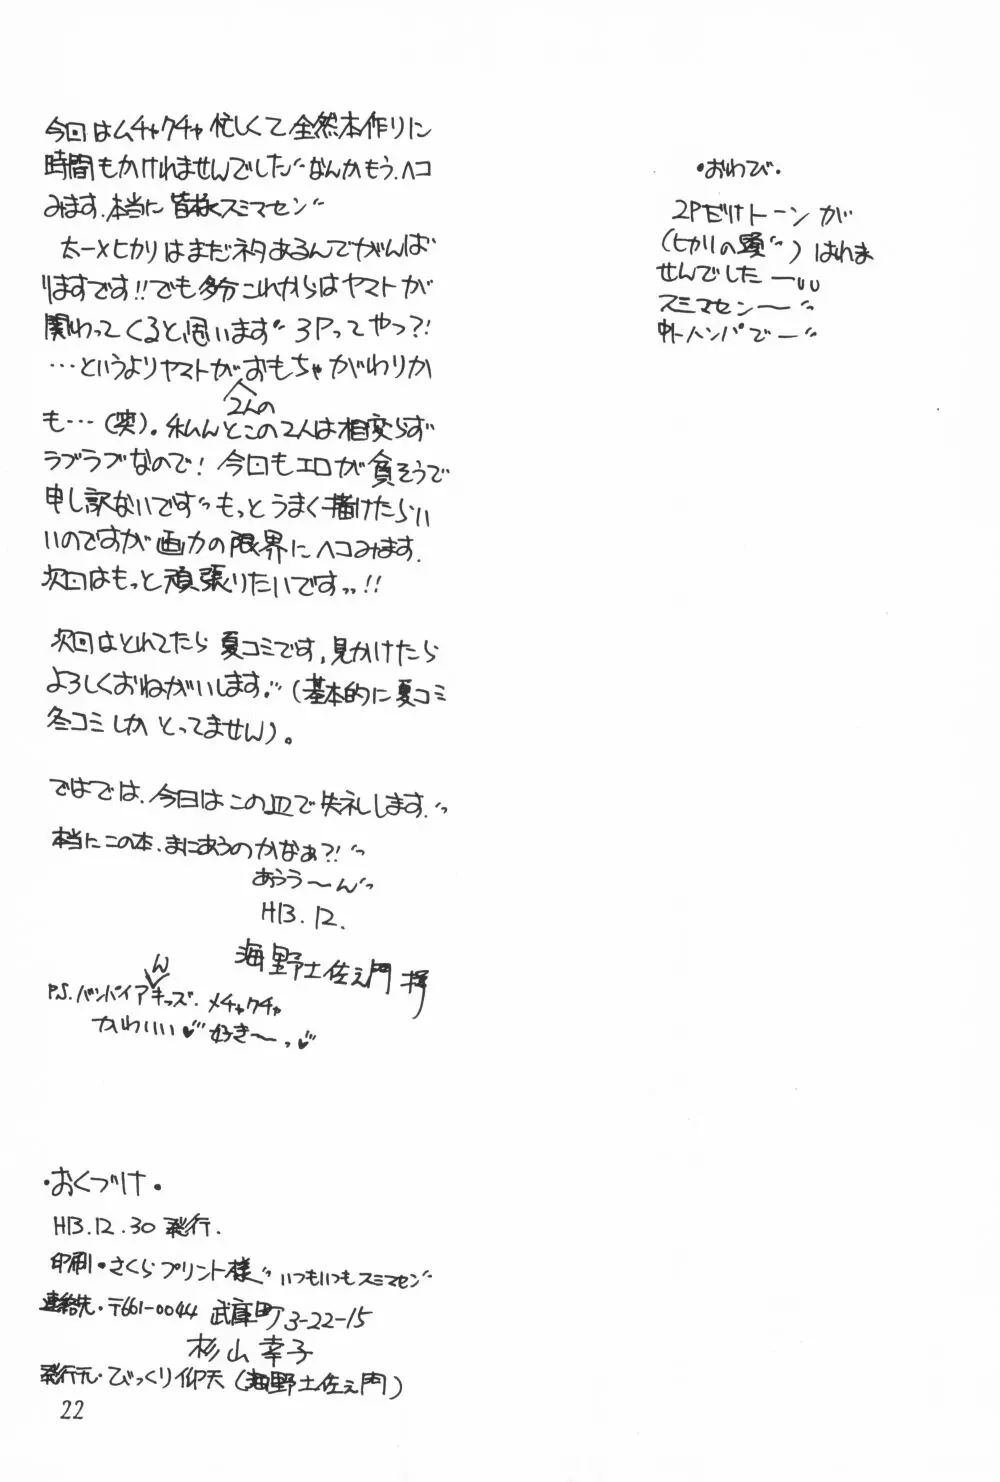 今回はムチャクチャ忙しくて全然本作りに
時間もかけれませんでした〃なんかもう、ヘコ
みます.本当に皆様スミマセン〃
太一×ヒカリはまだネタあるんでがんば
りますです!!でも多分これからはヤマトが
関わってくると思います〃3Pってやつ?!
…というよりヤマトがおもちゃがわりか
2人の
も…(笑)。なんとこの2人は相変らず
ラブラブなので!今回もエロが貧そうで
申し訳ないです〃もっとうまく描けたらい
いのですが画力の限界にヘコみます.
次回はもっと頑張りたいですっ!!
次回はとれてたら夏コミです,見かけたら
よろしくおねがいします〃(基本的に夏コミ
冬コミしかとってません)。
ではでは、今日はこの辺で失礼します.〃
本当にこの本、まにあうのかなぁ?!〃
あうう〜ん〃
H13.12.
海野土佐ェ門 拝
ん
P.S.バンパイアキッズ.メチャクチャ
かわいい♥〃好き〜っ♥
・おわび・
2Pだけトーンが
(ヒカリの頭〃)はれま
せんでしたー
スミマセンー〃
中トハンパでー〃
・おくづけ・
H13.12.30 発行.
印刷・さくらプリント様〃いつもいつもスミマセン〃
連絡先・〒661-0044 武庫町3-22-15
杉山幸子
発行元・びっくり仰天(海野土佐ェ門)
22